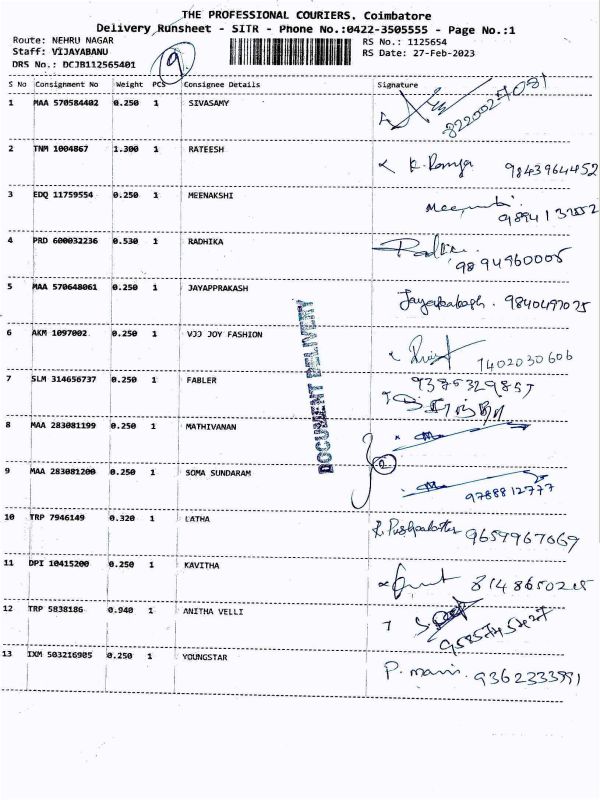 THE PROFESSIONAL COURIERS. Coimbatore
Delivery Runsheet - SITR - Phone No.:0422-3505555 - Page No.:1
Route: NEHRU NAGAR
Staff: VIJAYABANU
DRS No.: DCJB112565401
9
RS No.: 1125654
RS Date: 27-Feb-2023
S No Consignment No Weight PCS Consignee Details Signature
1 MAA 570584402 0.250 1 SIVASAMY
2 TNM 1004867 1.300 1 RATEESH K. Ramya 9843964452
3 EDQ 11759554 0.250 1 MEENAKSHI
4 PRD 600032236 0.530 1 RADHIKA 9894960005
5 MAA 570648061 0.250 1 JAYAPPRAKASH 9840497025
6 AKM 1097002 0.250 1 VJJ JOY FASHION 7402030606
7 SLM 314656737 0.250 1 FABLER 9385329857
8 MAA 283081199 0.250 1 MATHIVANAN
2
9 MAA 283081200 0.250 1 SOMA SUNDARAM 9788812777
10 TRP 7946149 0.320 1 LATHA 9659967069
11 DPI 10415200 0.250 1 KAVITHA 8148650215
12 TRP 5838186 0.940 1 ANITHA VELLI
13 IXM 503216905 0.250 1 YOUNGSTAR P. mani 9362333991
DOCUMENT DELIVERY